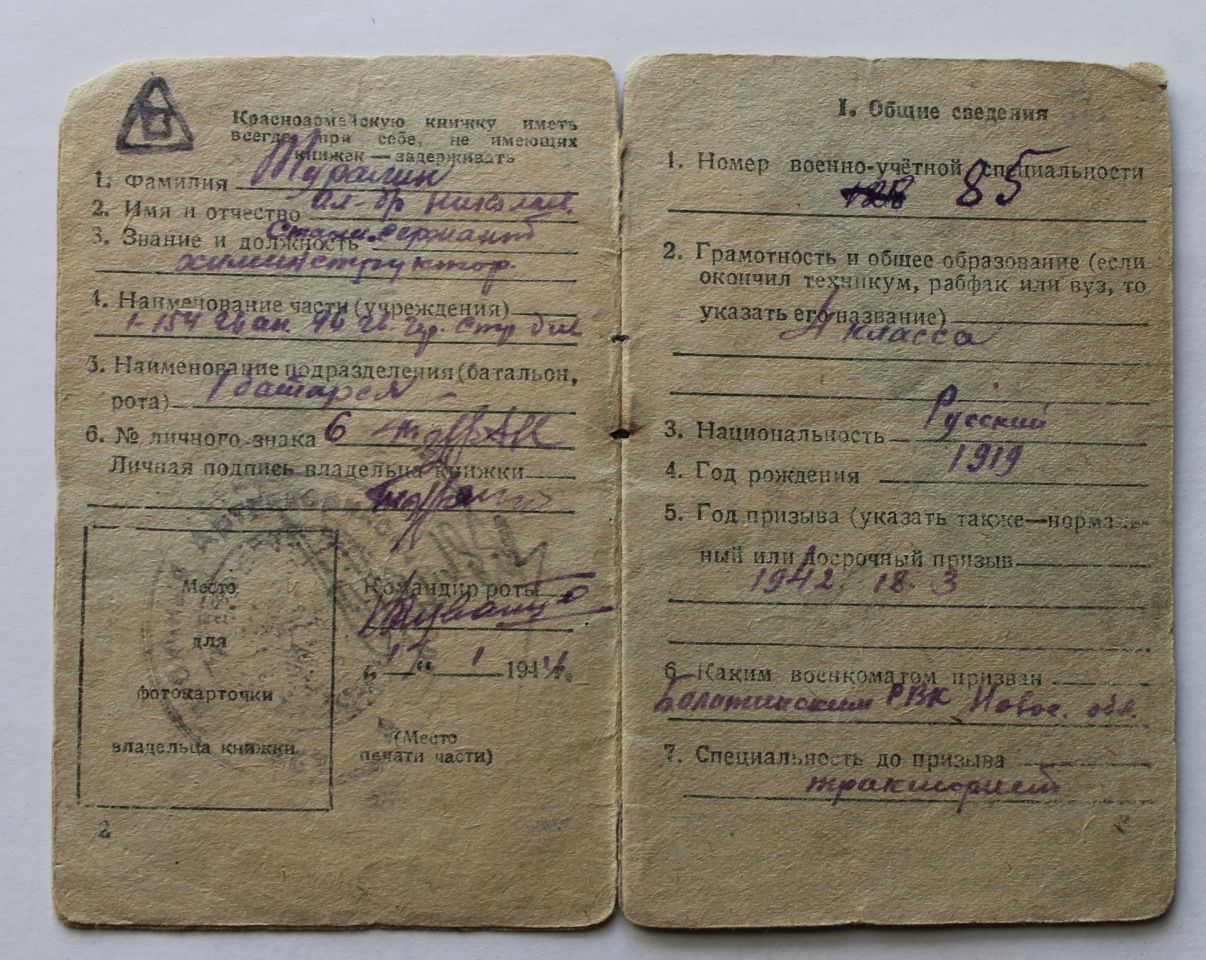 Красноармейскую книжку иметь
всегда при себе, не имеющих
книжек — задерживать
1. Фамилия Туралин
2. Имя и отчество Ал-др Николаев.
3. Звание и должность Старш. сержант
химинструктор.
4. Наименование части (учреждения)
1-154 46 гв. стр див
5. Наименование подразделения (батальон,
рота) 1 батарея
6. № личного знака 6
Личная подпись владельца книжки
Место
для
фотокарточки
владельца книжки
Командир роты
„17“ 1 1944 г.
(Место
печати части)
2
I. Общие сведения
1. Номер военно-учётной специальности
85
2. Грамотность и общее образование (если
окончил техникум, рабфак или вуз, то
указать его название)
4 класса
3. Национальность Русский
4. Год рождения 1919
5. Год призыва (указать также—нормаль-
ный или досрочный призыв
1942. 18. 3
6. Каким военкоматом призван
Болотнинским РВК Новос. обл.
7. Специальность до призыва
тракторист